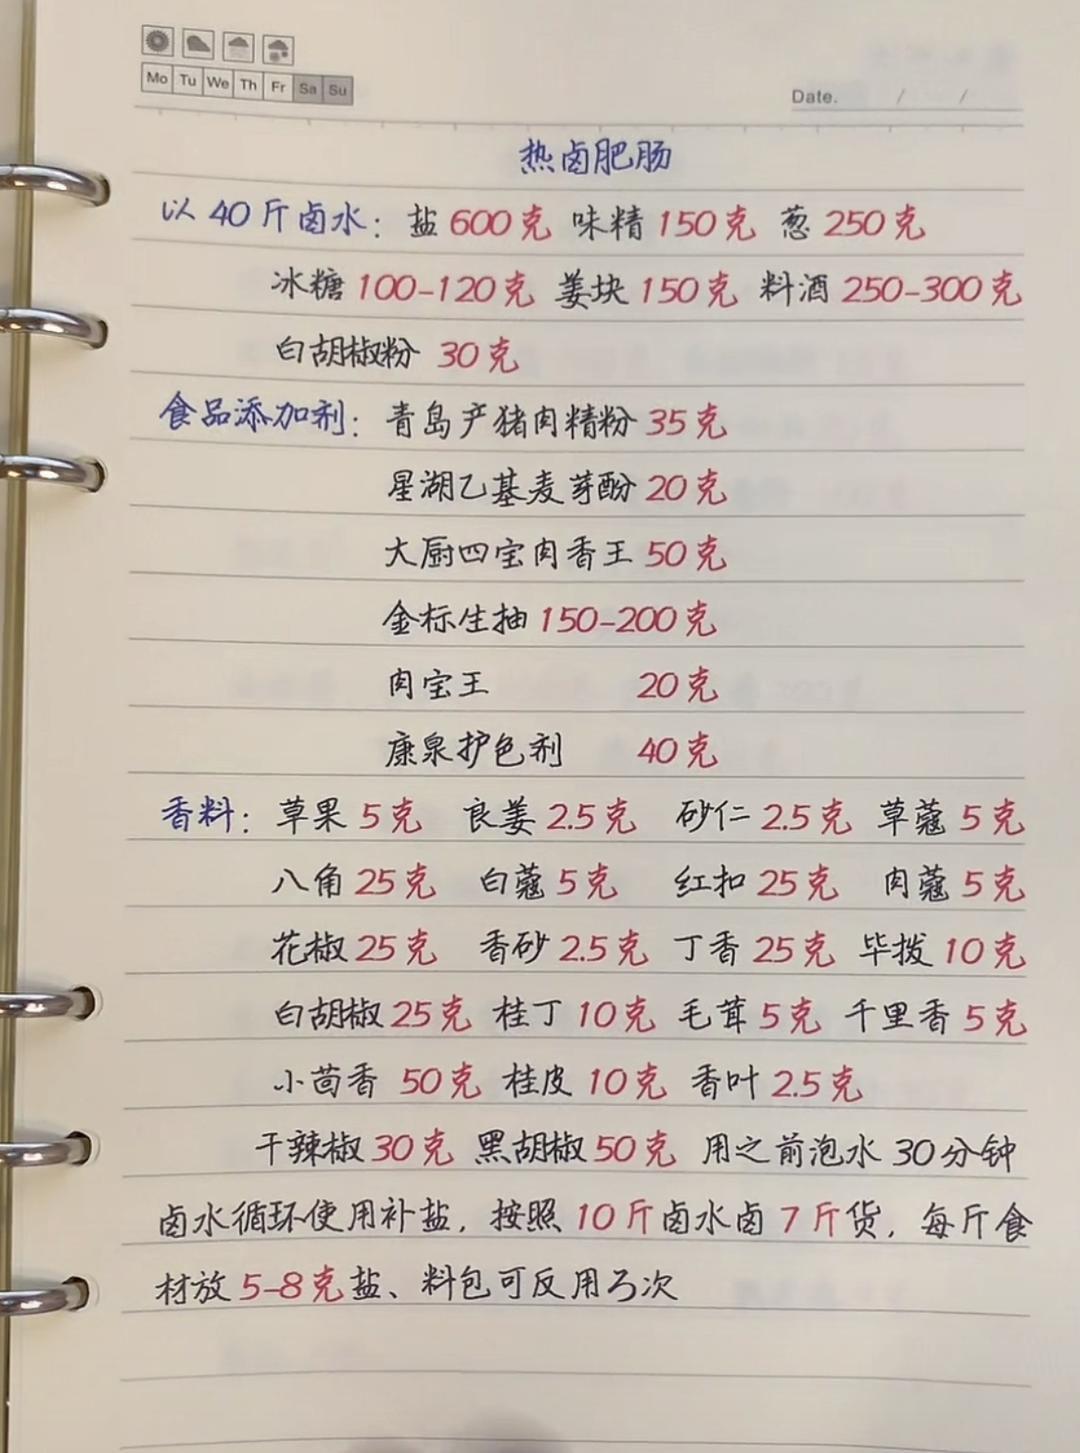 Mo Tu We Th Fr Sa Su
Date. / /
热卤肥肠
以40斤卤水：盐600克 味精150克 葱250克
冰糖100-120克 姜块150克 料酒250-300克
白胡椒粉 30克
食品添加剂：青岛产猪肉精粉35克
星湖乙基麦芽酚20克
大厨四宝肉香王50克
金标生抽150-200克
肉宝王 20克
康泉护色剂 40克
香料：草果5克 良姜2.5克 砂仁2.5克 草蔻5克
八角25克 白蔻5克 红扣25克 肉蔻5克
花椒25克 香砂2.5克 丁香25克 毕拨10克
白胡椒25克 桂丁10克 毛茸5克 千里香5克
小茴香 50克 桂皮10克 香叶2.5克
干辣椒30克 黑胡椒50克 用之前泡水30分钟
卤水循环使用补盐，按照10斤卤水卤7斤货，每斤食
材放5-8克盐、料包可反用3次